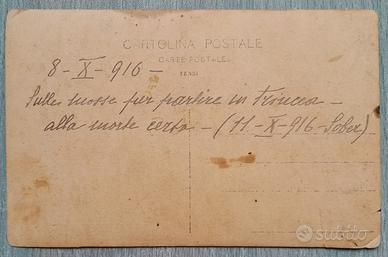 CARTOLINA POSTALE
CARTE POSTALE
8-X-916-
Sulle mosse per partire in trincea -
alla morte certa - (11-X-916-Sober)
subito